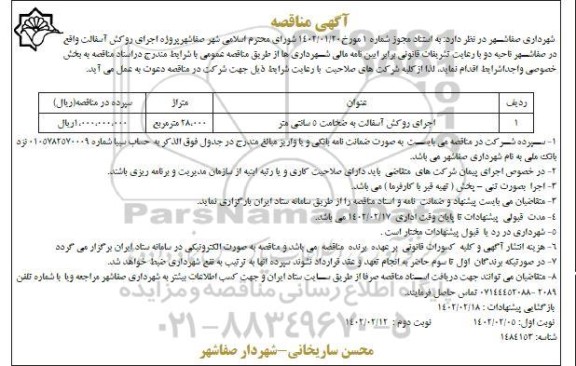 آگهی مناقصه
شهرداری صفاشهر در نظر دارد، به استناد مجوز شماره ۱ مورخ ۱۴۰۲/۰۱/۲۰ شورای محترم اسلامی شهر صفاشهر پروژه اجرای روکش آسفالت واقع
در صفاشهر ناحیه دو با رعایت تشریفات قانونی برابر آیین نامه مالی شهرداری ها از طریق مناقصه عمومی با شرایط مندرج در اسناد مناقصه به بخش
خصوصی واجدالشرایط اقدام نماید. لذا از کلیه شرکت های صلاحیت با رعایت شرایط ذیل جهت شرکت در مناقصه دعوت به عمل می آید.
ردیف عنوان متراژ سپرده در مناقصه(ریال)
۱ اجرای روکش آسفالت به ضخامت ۵ سانتی متر ۲۸،۰۰۰ مترمربع ۱،۰۰۰،۰۰۰،۰۰۰ریال
۱- سپرده شرکت در مناقصه می بایست به صورت ضمانت نامه بانکی و یا واریز مبالغ مندرج در جدول فوق الذکر به حساب سیبا شماره ۰۱۰۵۷۸۲۵۷۰۰۰۹ نزد
بانک ملی به نام شهرداری صفاشهر می باشد.
۲- در خصوص اجرای پیمان شرکت های متقاضی باید دارای صلاحیت کاری و یا رتبه ابنیه از سازمان مدیریت و برنامه ریزی باشد.
۳- اجرا بصورت تنی - پخش ( تهیه قیر با کارفرما ) می باشد.
۴- متقاضیان می بایست پیشنهاد و ضمانت نامه و اسناد مناقصه را از طریق سامانه ستاد ایران بارگزاری نماید.
۴- مدت قبولی پیشنهادات تا پایان وقت اداری ۱۴۰۲/۰۲/۱۷ می باشد.
۵- شهرداری در رد یا قبول پیشنهادات مختار است .
۶- هزینه انتشار آگهی و کلیه کسورات قانونی بر عهده برنده مناقصه می باشد و مناقصه به صورت الکترونیکی در سامانه ستاد ایران برگزار می گردد
۷- در صورتیکه برندگان اول تا سوم حاضر به انجام تعهد و عقد قرارداد نشوند سپرده آنها به ترتیب به نفع شهرداری ضبط خواهد شد.
۸- متقاضیان می توانند جهت دریافت اسناد مناقصه صرفا از طریق سایت ستاد ایران و جهت کسب اطلاعات بیشتر به شهرداری صفاشهر مراجعه ویا با شماره تلفن
۲۰۸۹ - ۰۷۱۴۴۴۵۲۰۸۸ تماس حاصل فرمایند.
بازگشایی پیشنهادات : ۱۴۰۲/۰۲/۱۸
نوبت اول: ۱۴۰۲/۰۲/۰۵ نوبت دوم : ۱۴۰۲/۰۲/۱۲
شناسه: ۱۴۸۴۱۵۳
محسن ساریخانی-شهردار صفاشهر
ParsNamad
پایگاه اطلاع رسانی مناقصه و مزایده
۰۲۱-۸۸۳۴۹۶۷۰-۵